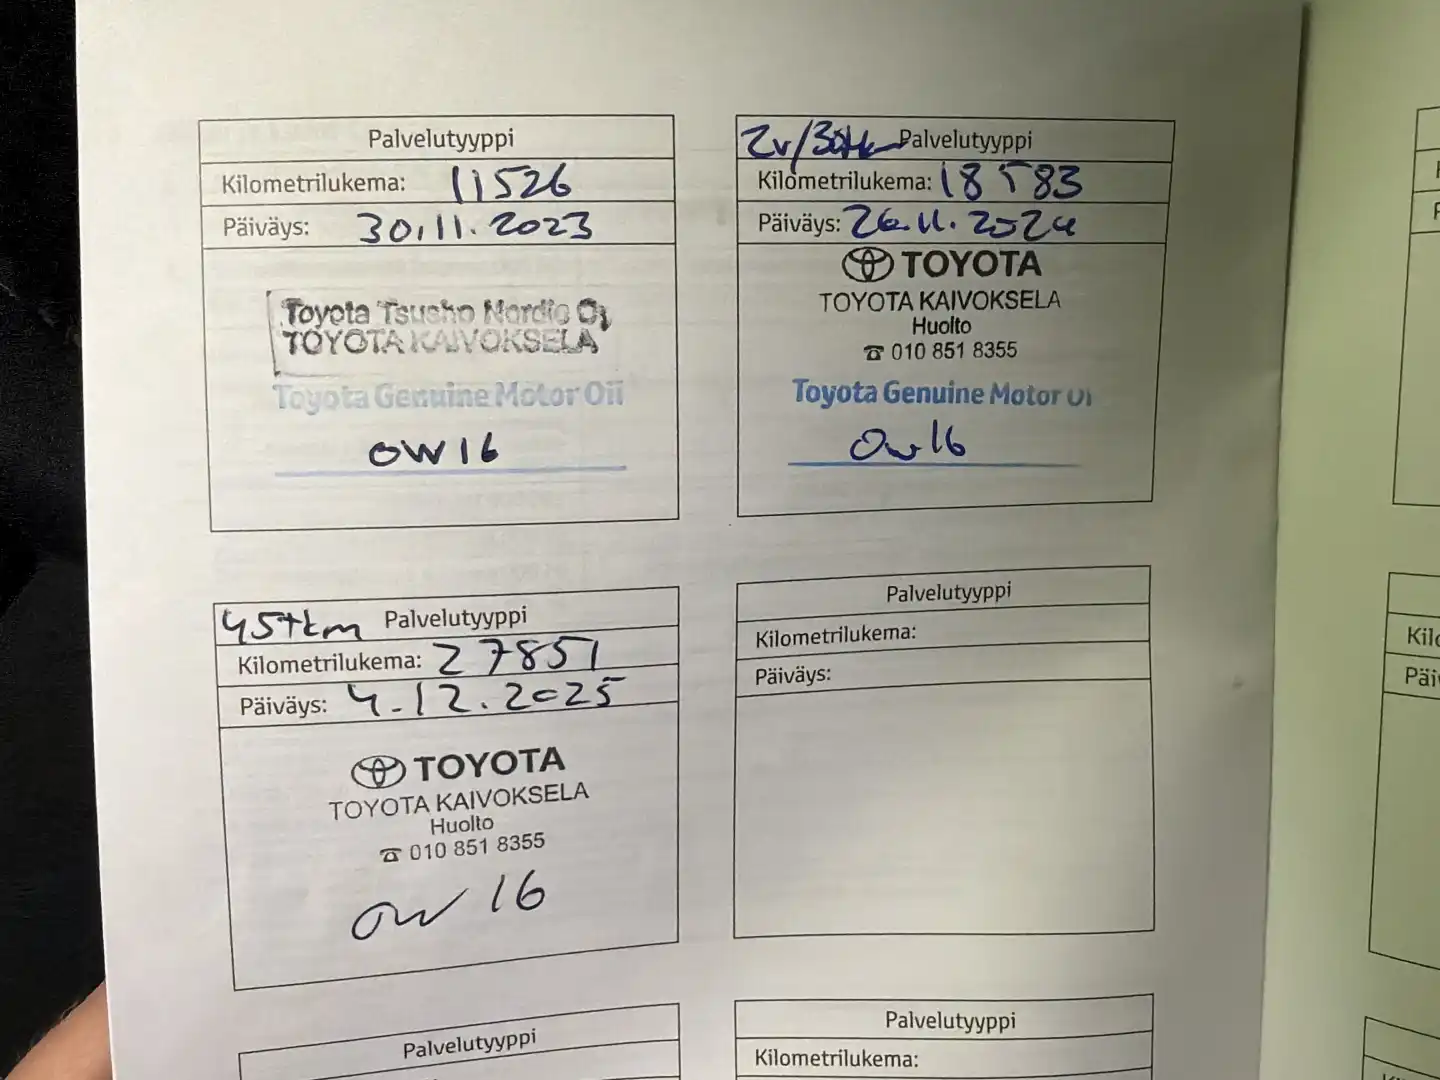 Palvelutyyppi
Kilometrilukema: 11526
Päiväys: 30.11.2023
Toyota Tsusho Nordic Oy
TOYOTA KAIVOKSELA
Toyota Genuine Motor Oil
OW16
2v/30tk Palvelutyyppi
Kilometrilukema: 18583
Päiväys: 26.11.2024
TOYOTA
TOYOTA KAIVOKSELA
Huolto
☎ 010 851 8355
Toyota Genuine Motor Oi
Ow16
45tkm Palvelutyyppi
Kilometrilukema: 27851
Päiväys: 4.12.2025
TOYOTA
TOYOTA KAIVOKSELA
Huolto
☎ 010 851 8355
Ow 16
Palvelutyyppi
Kilometrilukema:
Päiväys:
Palvelutyyppi
Palvelutyyppi
Kilometrilukema:
Kilo
Päi